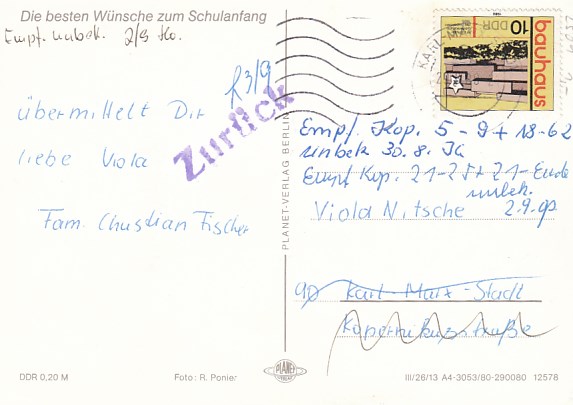 Die besten Wünsche zum Schulanfang
Empf. unbek. 2/9
R 3/9
Zurück
übermittelt Dir
liebe Viola
Fam. Christian Fischer
DDR 0,20 M
Foto: R. Ponier
PLANET-VERLAG BERLIN
PLANET
DDR
10
bauhaus
KARL-M
Empf. Kop. 5-9 + 18-62
unbek 30.8.
Empf Kop. 21-25 + 71-Ende
unbek.
Viola Nitsche 2.9.
90 Karl-Marx-Stadt
Kopernikusstraße
III/26/13 A4-3053/80-290080 12578